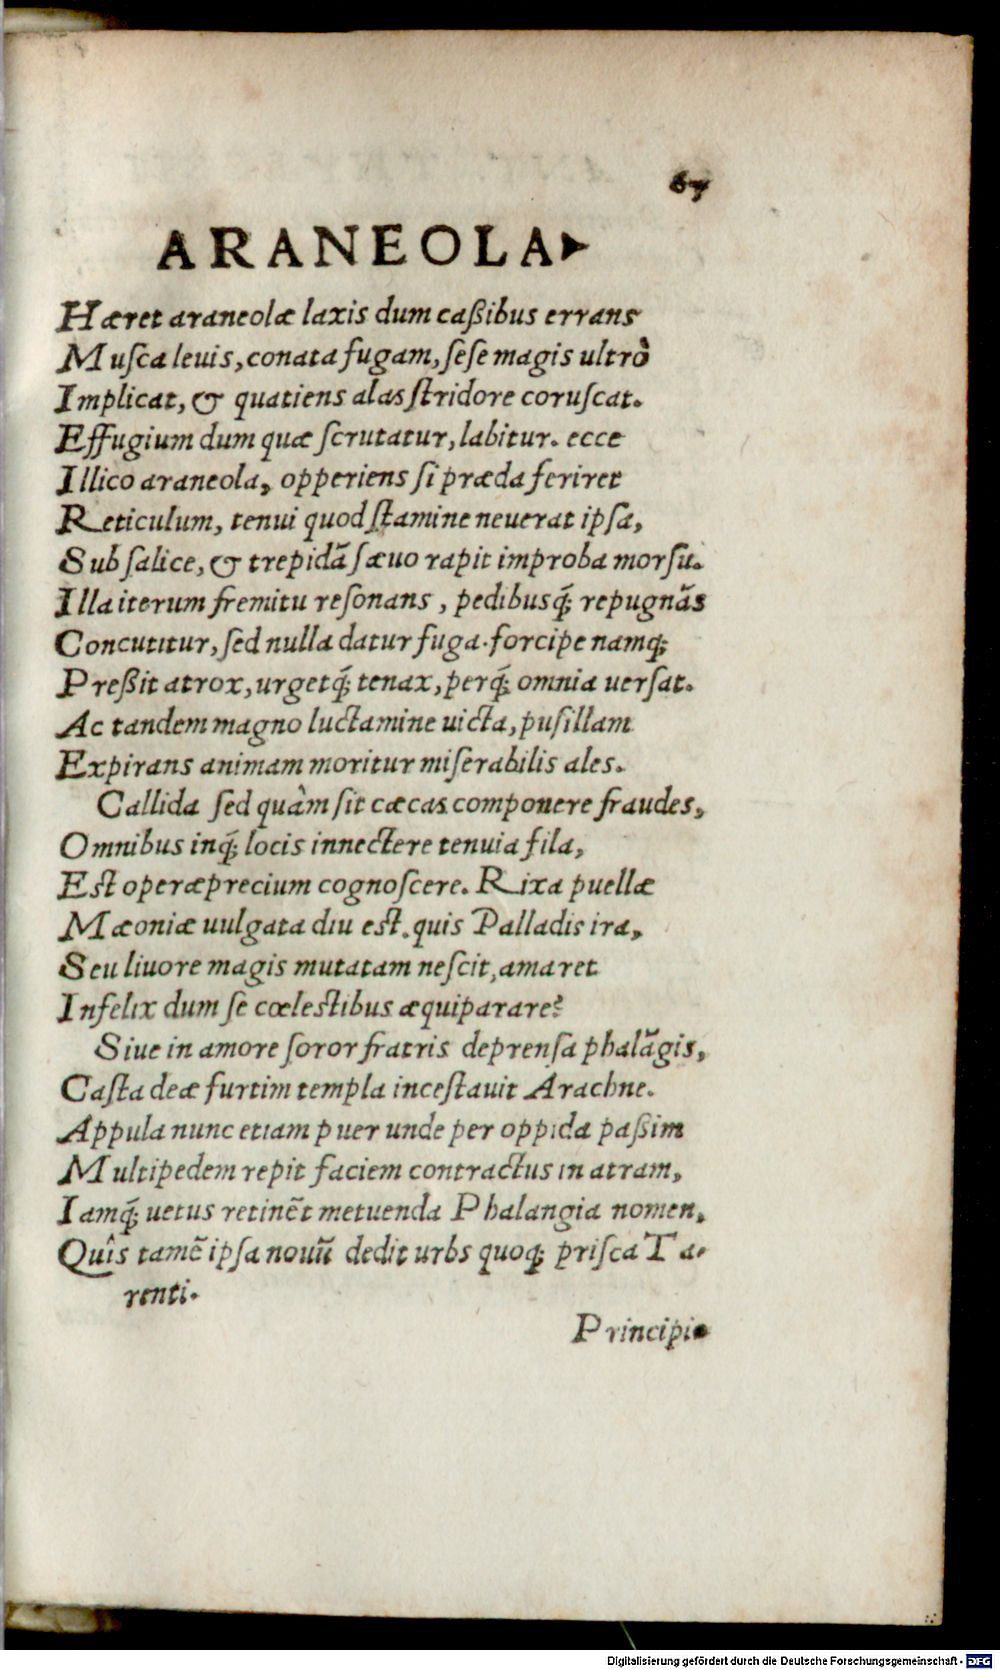 67
ARANEOLA
Hæret araneolæ laxis dum caßibus errans
Muſca leuis, conata fugam, ſeſe magis ultrò
Implicat, & quatiens alas ſtridore coruſcat.
Effugium dum quæ ſcrutatur, labitur. ecce
Illico araneola, opperiens ſi præda feriret
Reticulum, tenui quod ſtamine neuerat ipſa,
Sub ſalice, & trepidā ſæuo rapit improba morſu.
Illa iterum fremitu reſonans, pedibusq́; repugnās
Concutitur, ſed nulla datur fuga. forcipe namq;
Preßit atrox, urgetq́; tenax, perq́; omnia uerſat.
Ac tandem magno luctamine uicta, puſillam
Expirans animam moritur miſerabilis ales.
Callida ſed quàm ſit cæcas componere fraudes,
Omnibus inq́; locis innectere tenuia fila,
Eſt operæprecium cognoſcere. Rixa puellæ
Mæoniæ uulgata diu eſt. quis Palladis ira,
Seu liuore magis mutatam neſcit, amaret
Infelix dum ſe cœleſtibus æquiparare?
Siue in amore ſoror fratris deprenſa phalāgis,
Caſta deæ furtim templa inceſtauit Arachne.
Appula nunc etiam puer unde per oppida paßim
Multipedem repit faciem contractus in atram,
Iamq́; uetus retinēt metuenda Phalangia nomen,
Quîs tamē ipſa nouū dedit urbs quoq; priſca Ta-
renti.
Principio
Digitalisierung gefördert durch die Deutsche Forschungsgemeinschaft - DFG